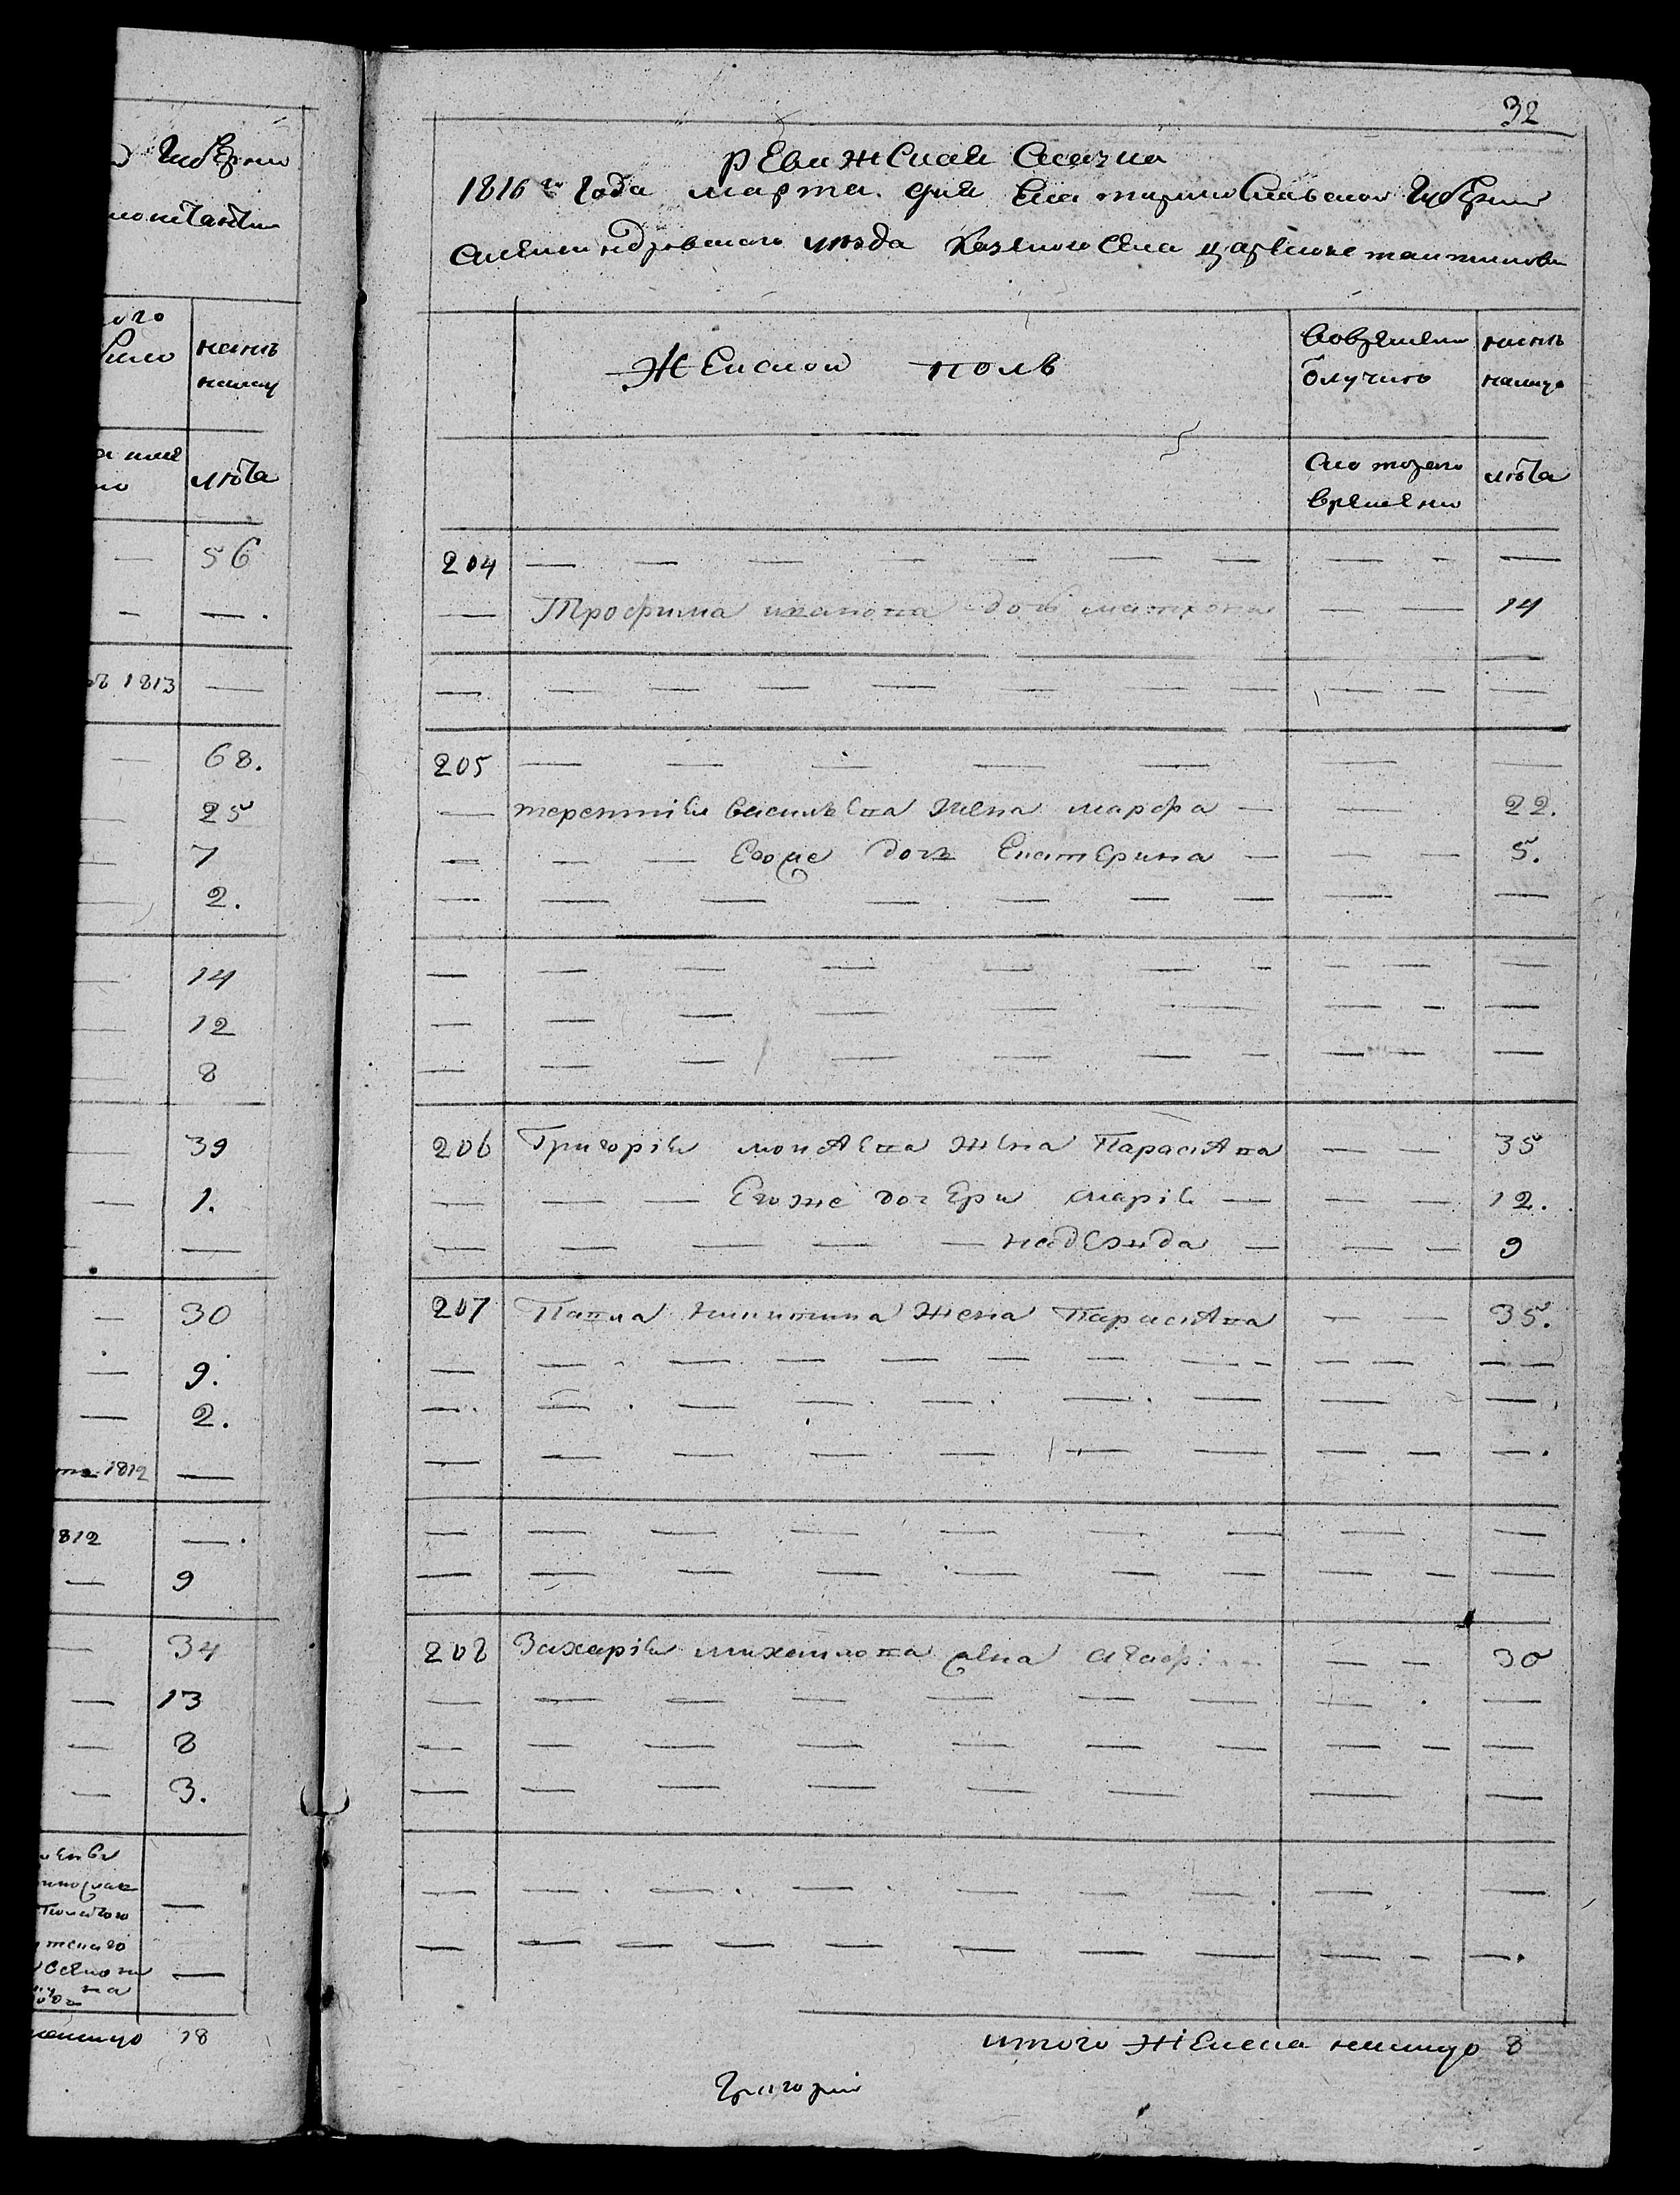 32
рЕвижСкая Сказка
1816го Года марта дня Екатиринославской Губернии
Александровского уезда Казенного Села Цареконстантиновки
Женской полъ
Вовремени
отлучито
нынъ
налицо
Скоторого
времени
лѣта
204
Трофима иванова дочь матрона 14
205
терентиiя василъева жена марфа 22.
Егоже дочь Екатерина 5.
206 Григорiя моисѣева жена Параскѣва 35
Егоже дочери мариiя 12.
надежда 9
207 Павла никитина жена Параскѣва 35.
208 Захарiя михайлова жена 30
итого жЕнска налицо 8
Григорий
Губернии
нынъ
налицо
лѣта
56
1813
68.
25
7
2.
14
12
8
39
1.
30
9.
2.
1812
1812
9
34
13
8
3.
налицо 18